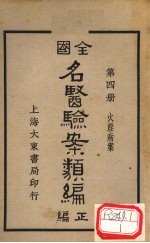 第四册 火淫病案
全國
名醫驗案類編
正編
上海大東書局印行